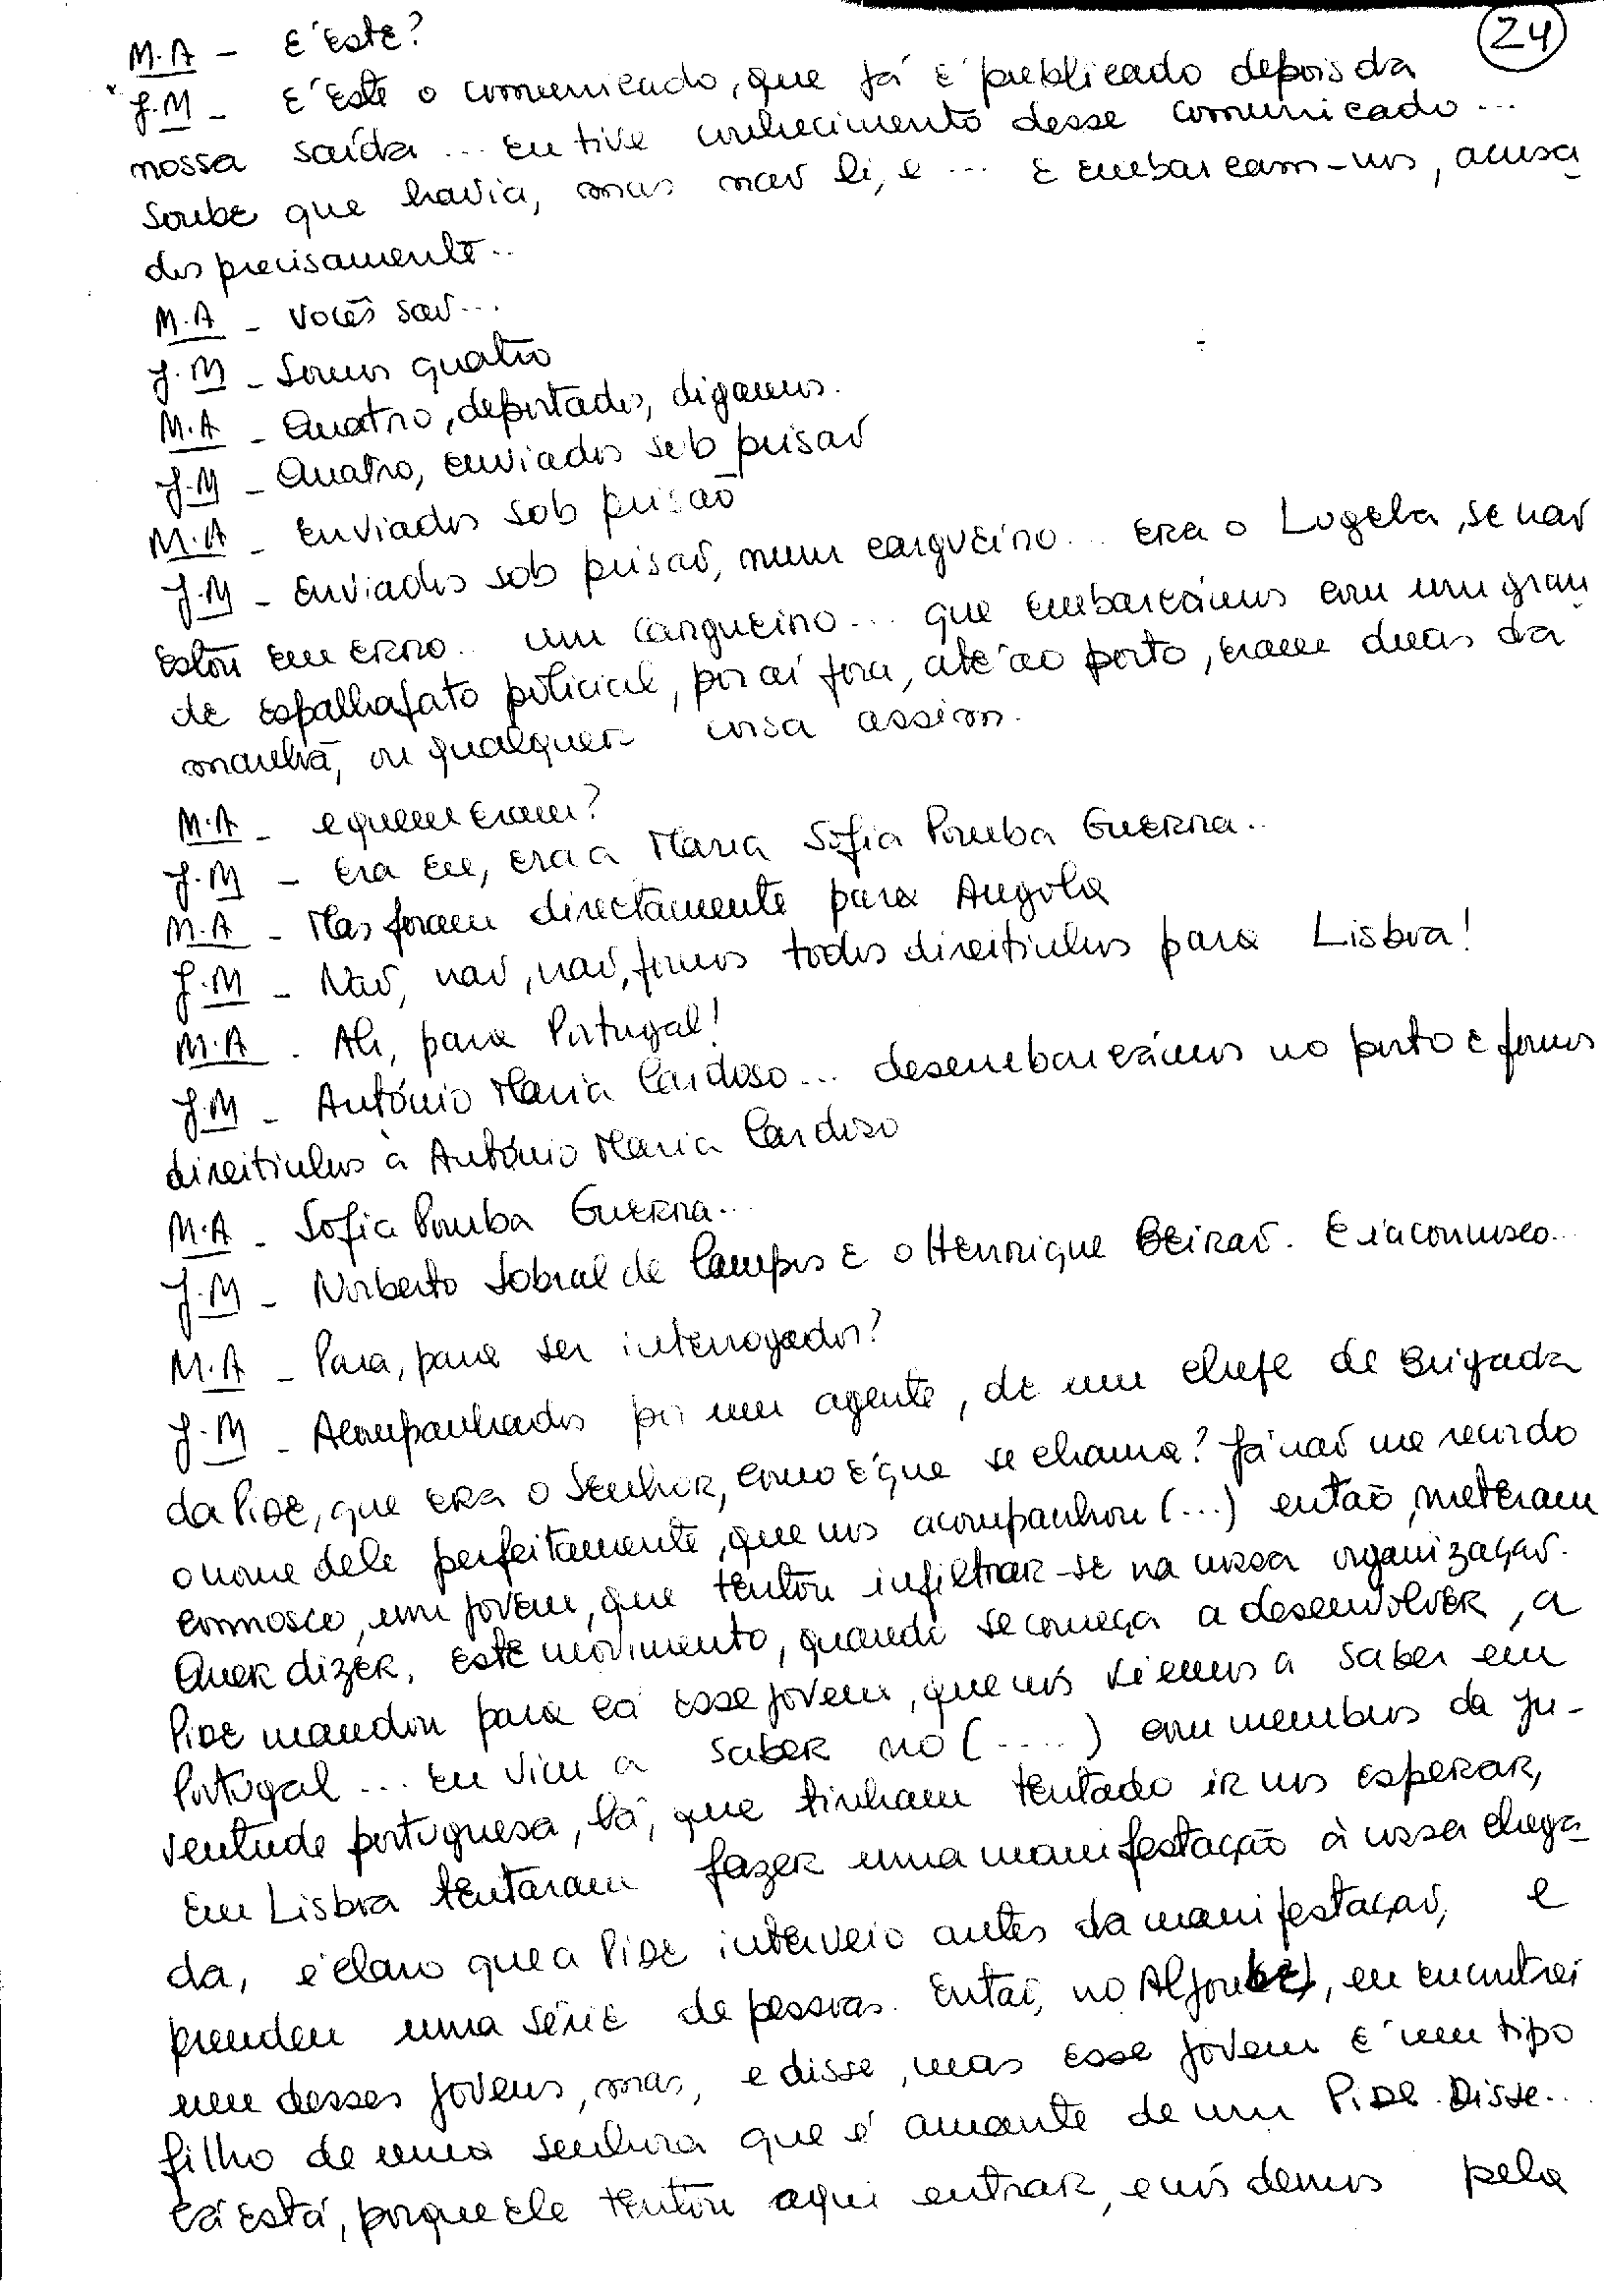 24
M.A - E' este?
J.M - E' este o comunicado, que já é publicado depois da
nossa saída... eu tive conhecimento desse comunicado...
soube que havia, mas não li, e ... E embarcam-nos, acusa
dos precisamente..
M.A - Vocês são...
J.M - Somos quatro
M.A - Quatro, deportados, digamos.
J.M - Quatro, enviados sob prisão
M.A - Enviados sob prisão
J.M - Enviados sob prisão, num cargueiro... era o Lugela, se não
estou em erro.. um cargueiro... que embarcámos com um gran
de espalhafato policial, por aí fora, até ao porto, eram duas da
manhã, ou qualquer coisa assim.
M.A - e quem eram?
J.M - Era eu, era a Maria Sofia Pomba Guerra..
M.A - Mas foram directamente para Angola
J.M - Não, não, não, fomos todos direitinhos para Lisboa!
M.A - Ah, para Portugal!
J.M - António Maria Cardoso... desembarcámos no porto e fomos
direitinhos à António Maria Cardoso
M.A - Sofia Pomba Guerra...
J.M - Norberto Sobral de Campos e o Henrique Beirão. E ia connosco...
M.A - Para, para ser interrogados?
J.M - Acompanhados por um agente, de um chefe de Brigada
da Pide, que era o Senhor, como é que se chama? Já não me recordo
o nome dele perfeitamente, que nos acompanhou (...) então, meteram
connosco, um jovem, que tentou infiltrar-se na nossa organização.
Quer dizer, este movimento, quando se começa a desenvolver, a
Pide mandou para lá esse jovem, que nós viemos a saber em
Portugal... eu vim a saber no (....) com membros da Ju-
ventude portuguesa, lá, que tinham tentado ir nos esperar,
em Lisboa tentaram fazer uma manifestação à nossa chega
da, é claro que a Pide interveio antes da manifestação, e
prendeu uma série de pessoas. Então, no Aljube, eu encontrei
um desses jovens, mas, e disse, mas esse jovem é um tipo
filho de uma senhora que é amante de um Pide. Disse...
lá está, porque ele tentou aqui entrar, e nós demos pela